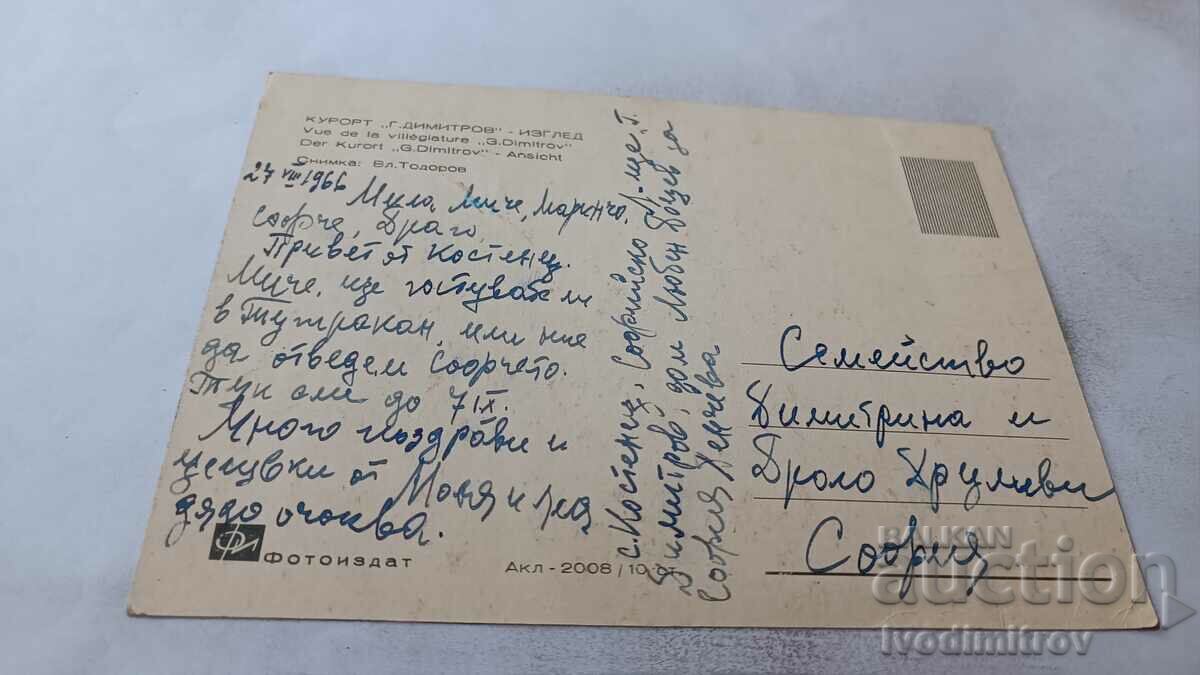 КУРОРТ „Г.ДИМИТРОВ" - ИЗГЛЕД
Vue de la villégiature „G.Dimitrov"
Der Kurort „G.Dimitrov" - Ansicht
Снимка: Вл.Тодоров
27 VIII 1966
Мила Миче, Маринчо,
Софче, Драго,
Привет от Костенец.
Миче, ще гостувате ли
в Тутракан, или ние
да отведем Софчето.
Тук сме до 7 IX.
Много поздрави и
целувки от
дядо очаква.
Фотоиздат
Акл - 2008/10 ст.
с. Костенец, Софийско
Димитров, дом Любен
София
Семейство
Димитрина и
Драго Друмеви
София
BALKAN
auction
ivodimitrov